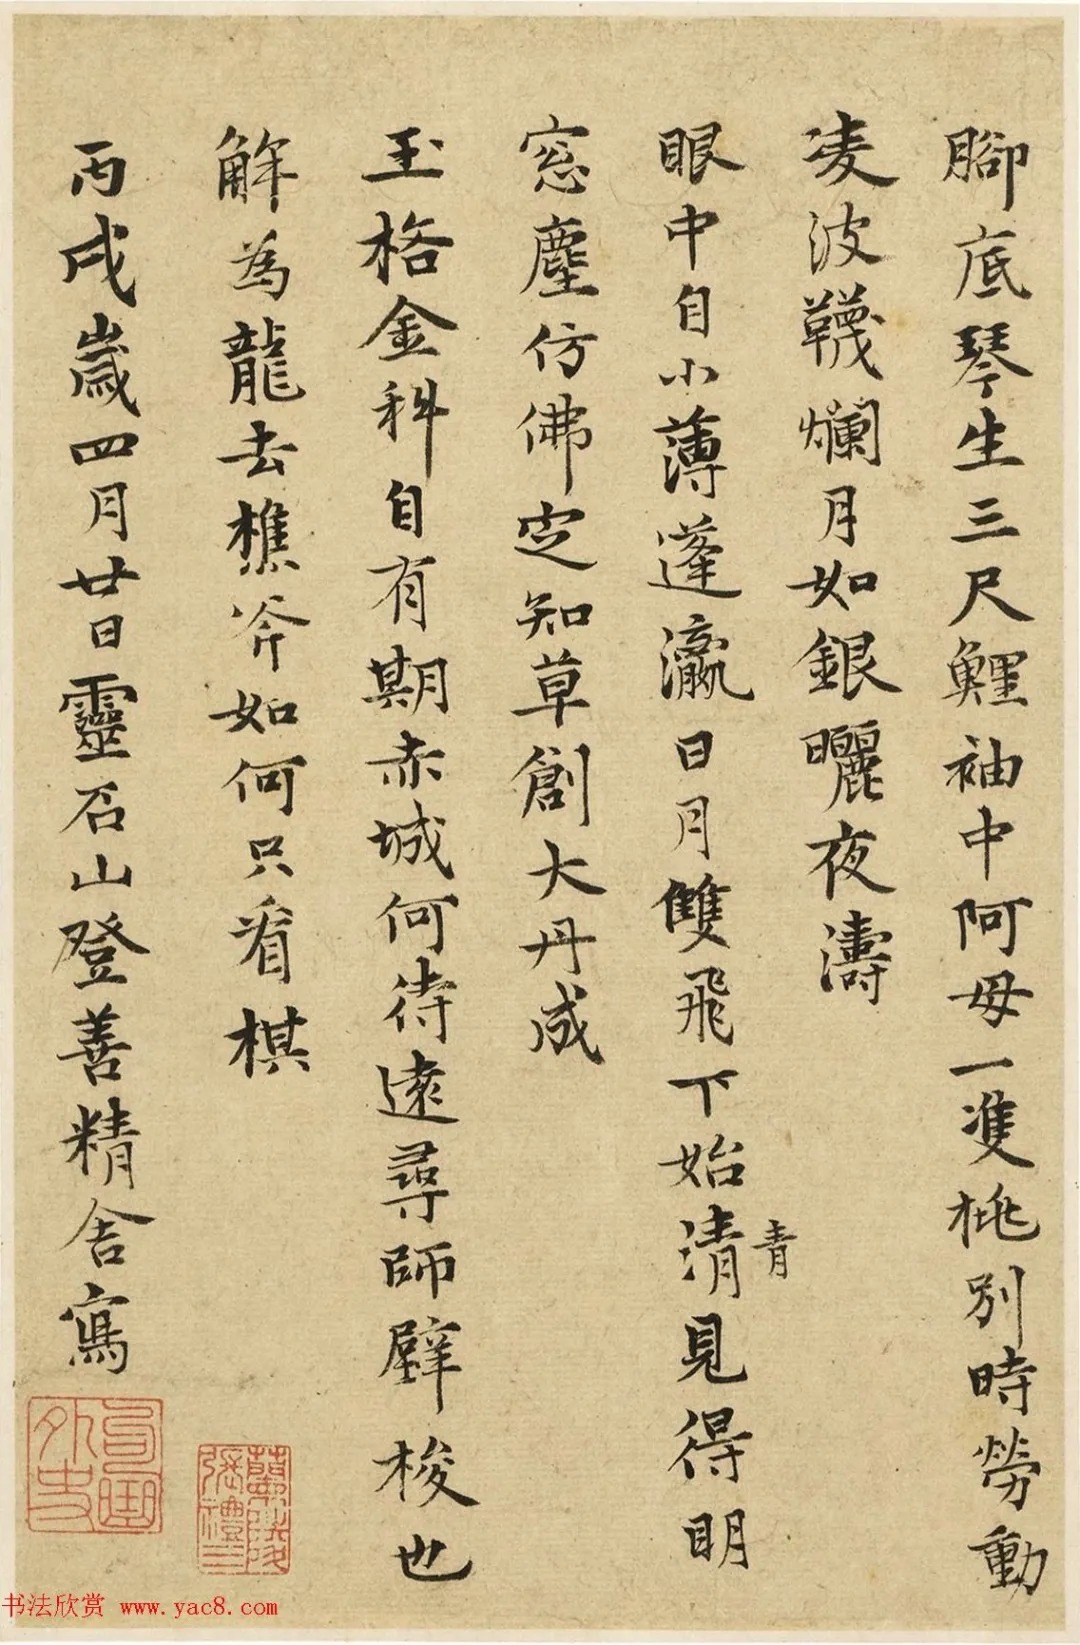 腳底琴生三尺鯉袖中阿母一雙桃別時勞動
凌波韈爛月如銀曬夜濤
眼中自小薄蓬瀛日月雙飛下始清見得明
青
窓塵仿佛定知草創大丹成
玉格金科自有期赤城何待遠尋師壁梭也
解為龍去樵斧如何只看棋
丙戌歲四月廿日靈石山登善精舍寫
蘭陵
張禮三
外史
书法欣赏 www.yac8.com